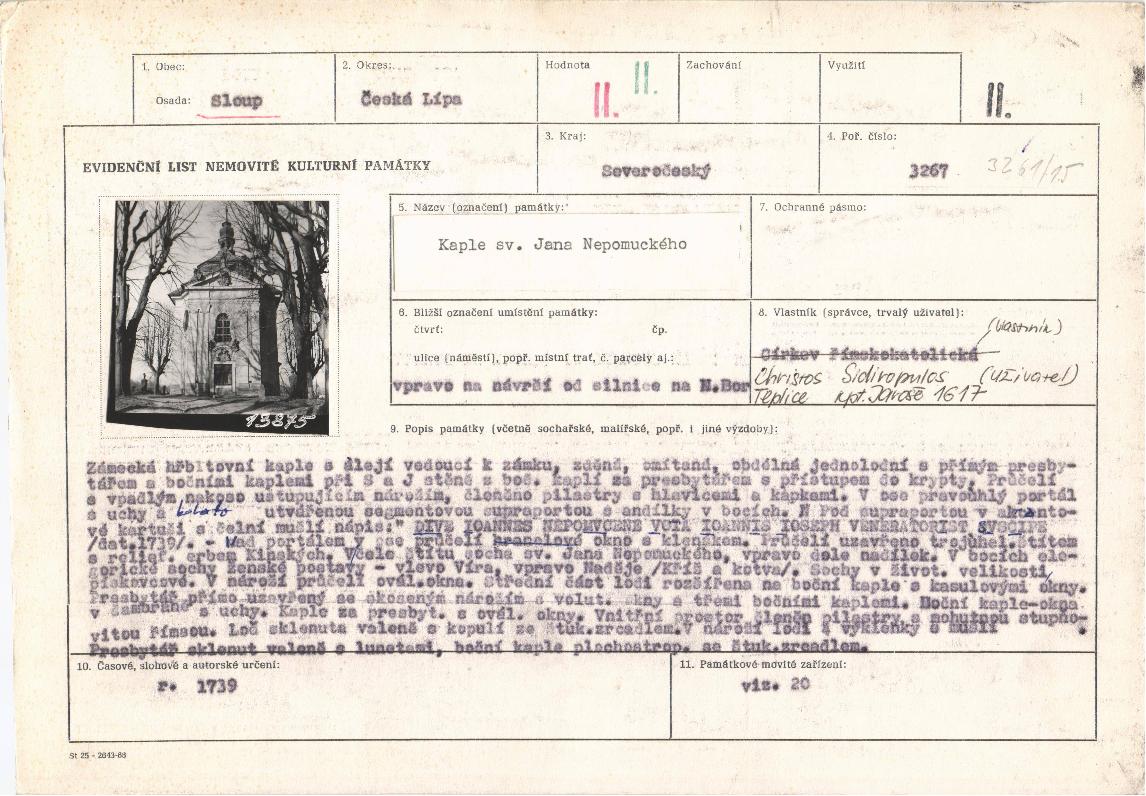 1. Obec:
2. Okres:
Hodnota
Zachování
Využití
Osada: Sloup
Česká Lípa
II.
II.
II.
3. Kraj:
4. Poř. číslo:
EVIDENČNÍ LIST NEMOVITÉ KULTURNÍ PAMÁTKY
Severočeský
3267
3261/15
5. Název (označení) památky:
7. Ochranné pásmo:
Kaple sv. Jana Nepomuckého
6. Bližší označení umístění památky:
8. Vlastník (správce, trvalý uživatel):
čtvrť:
čp.
(vlastník)
ulice (náměstí), popř. místní trať, č. parcely aj.:
Církev římskokatolická
vpravo na návrší od silnice na N.Bor
Christos Sidiropulos (uživatel)
Teplice kpt. Jaroše 1617
13875
9. Popis památky (včetně sochařské, malířské, popř. i jiné výzdoby):
Zámecká hřbitovní kaple s alejí vedoucí k zámku, zděná, omítaná, obdélná jednolodní s přímým presby-
tářem a bočními kaplemi při S a J stěně s boč. kaplí za presbytářem s přístupem do krypty. Průčelí
s vpadlým,nakoso ustupujícím nárožím, členěno pilastry s hlavicemi a kápkami. V ose pravoúhlý portál
s uchy a utvářenou segmentovou supraportou s andílky v bocích. Pod supraportou v akanto-
vé kartuši s čelní mušlí nápis:" DIVE IOANNES NEPOMUCENE VOTA IOANNIS IOSEPH VENERATORIST SUSCIPE
/dat.1739/. - Nad portálem v ose průčelí okno s klenákem. Průčelí uzavřeno trojúhel.štítem
s erbem Kinských. Včele štítu socha sv. Jana Nepomuckého, vpravo dole andílek. V bocích ale-
gorické sochy ženské postavy - vlevo Víra, vpravo Naděje /Kříž a kotva/. Sochy v život. velikosti,
pískovcové. V nároží průčelí ovál.okna. Střední část lodi rozšířena na boční kaple s kasulovými okny.
Presbytář přímo uzavřený se skoseným nárožím a volut. okny a třemi bočními kaplemi. Boční kaple-okna
v šambráně s uchy. Kaple za presbyt. s ovál. okny. Vnitřní prostor členěn pilastry s mohutnou stupňo-
vitou římsou. Loď sklenuta valeně s kopulí ze štuk.zrcadlem.V nároží lodi 4 výklenky s mušlí
Presbytář sklenut valeně s lunetami, boční kaple plochostrop. se štuk.zrcadlem.
10. Časové, slohové a autorské určení:
11. Památkové movité zařízení:
r. 1739
viz. 20
St 25 - 2643-66